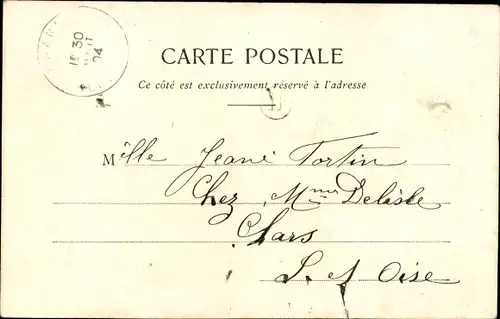 CARTE POSTALE
Ce côté est exclusivement réservé à l'adresse
Mlle Jeane Tortin
Chez Mme Delisle
Chars
S. et Oise
30
04